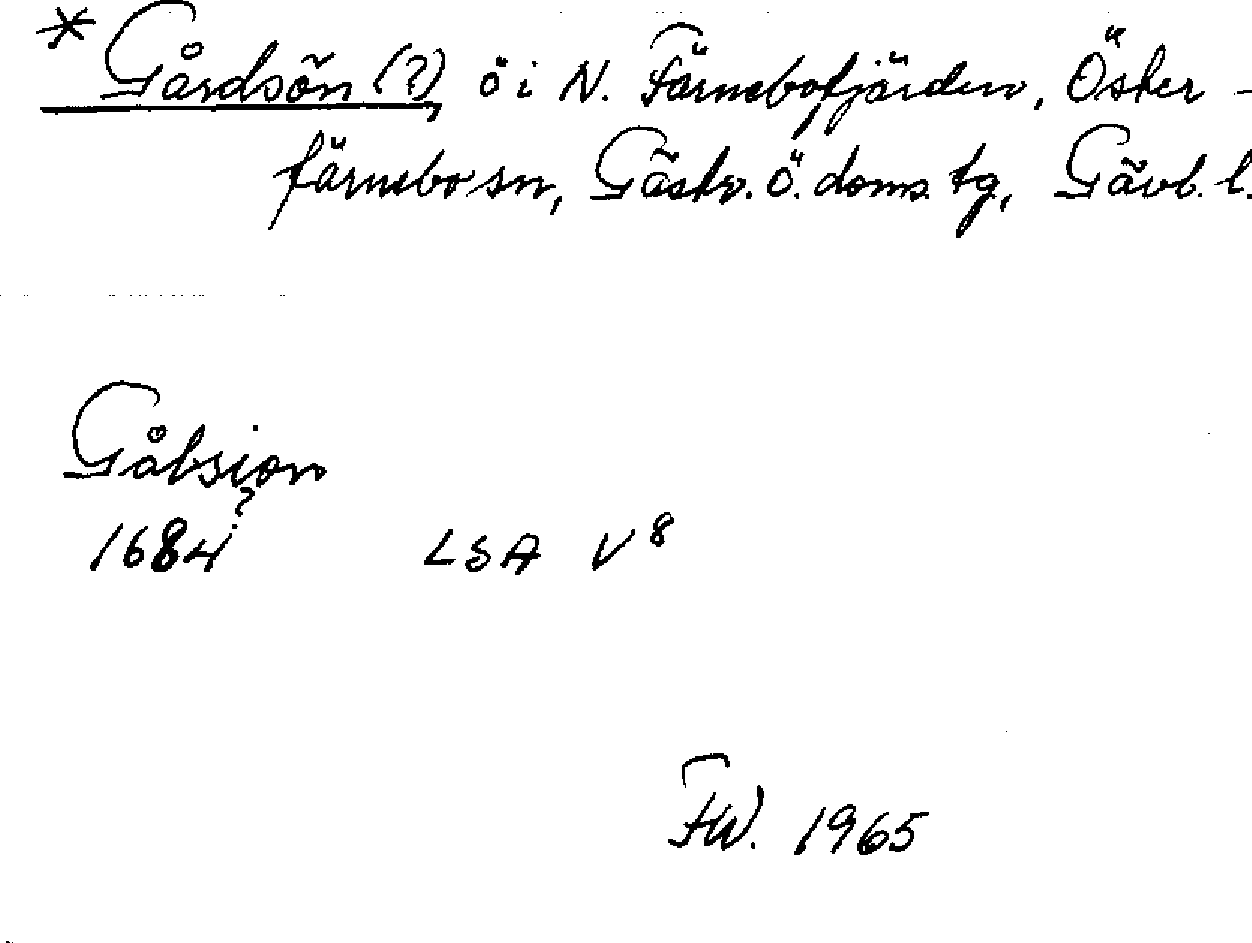 * Gårdsön (?), ö i N. Färnebofjärden, Öster-
färnebo sn, Gästr. ö. doms. tg, Gävb. l.
Gåbsion
?
1684 LSA V 8
FW. 1965